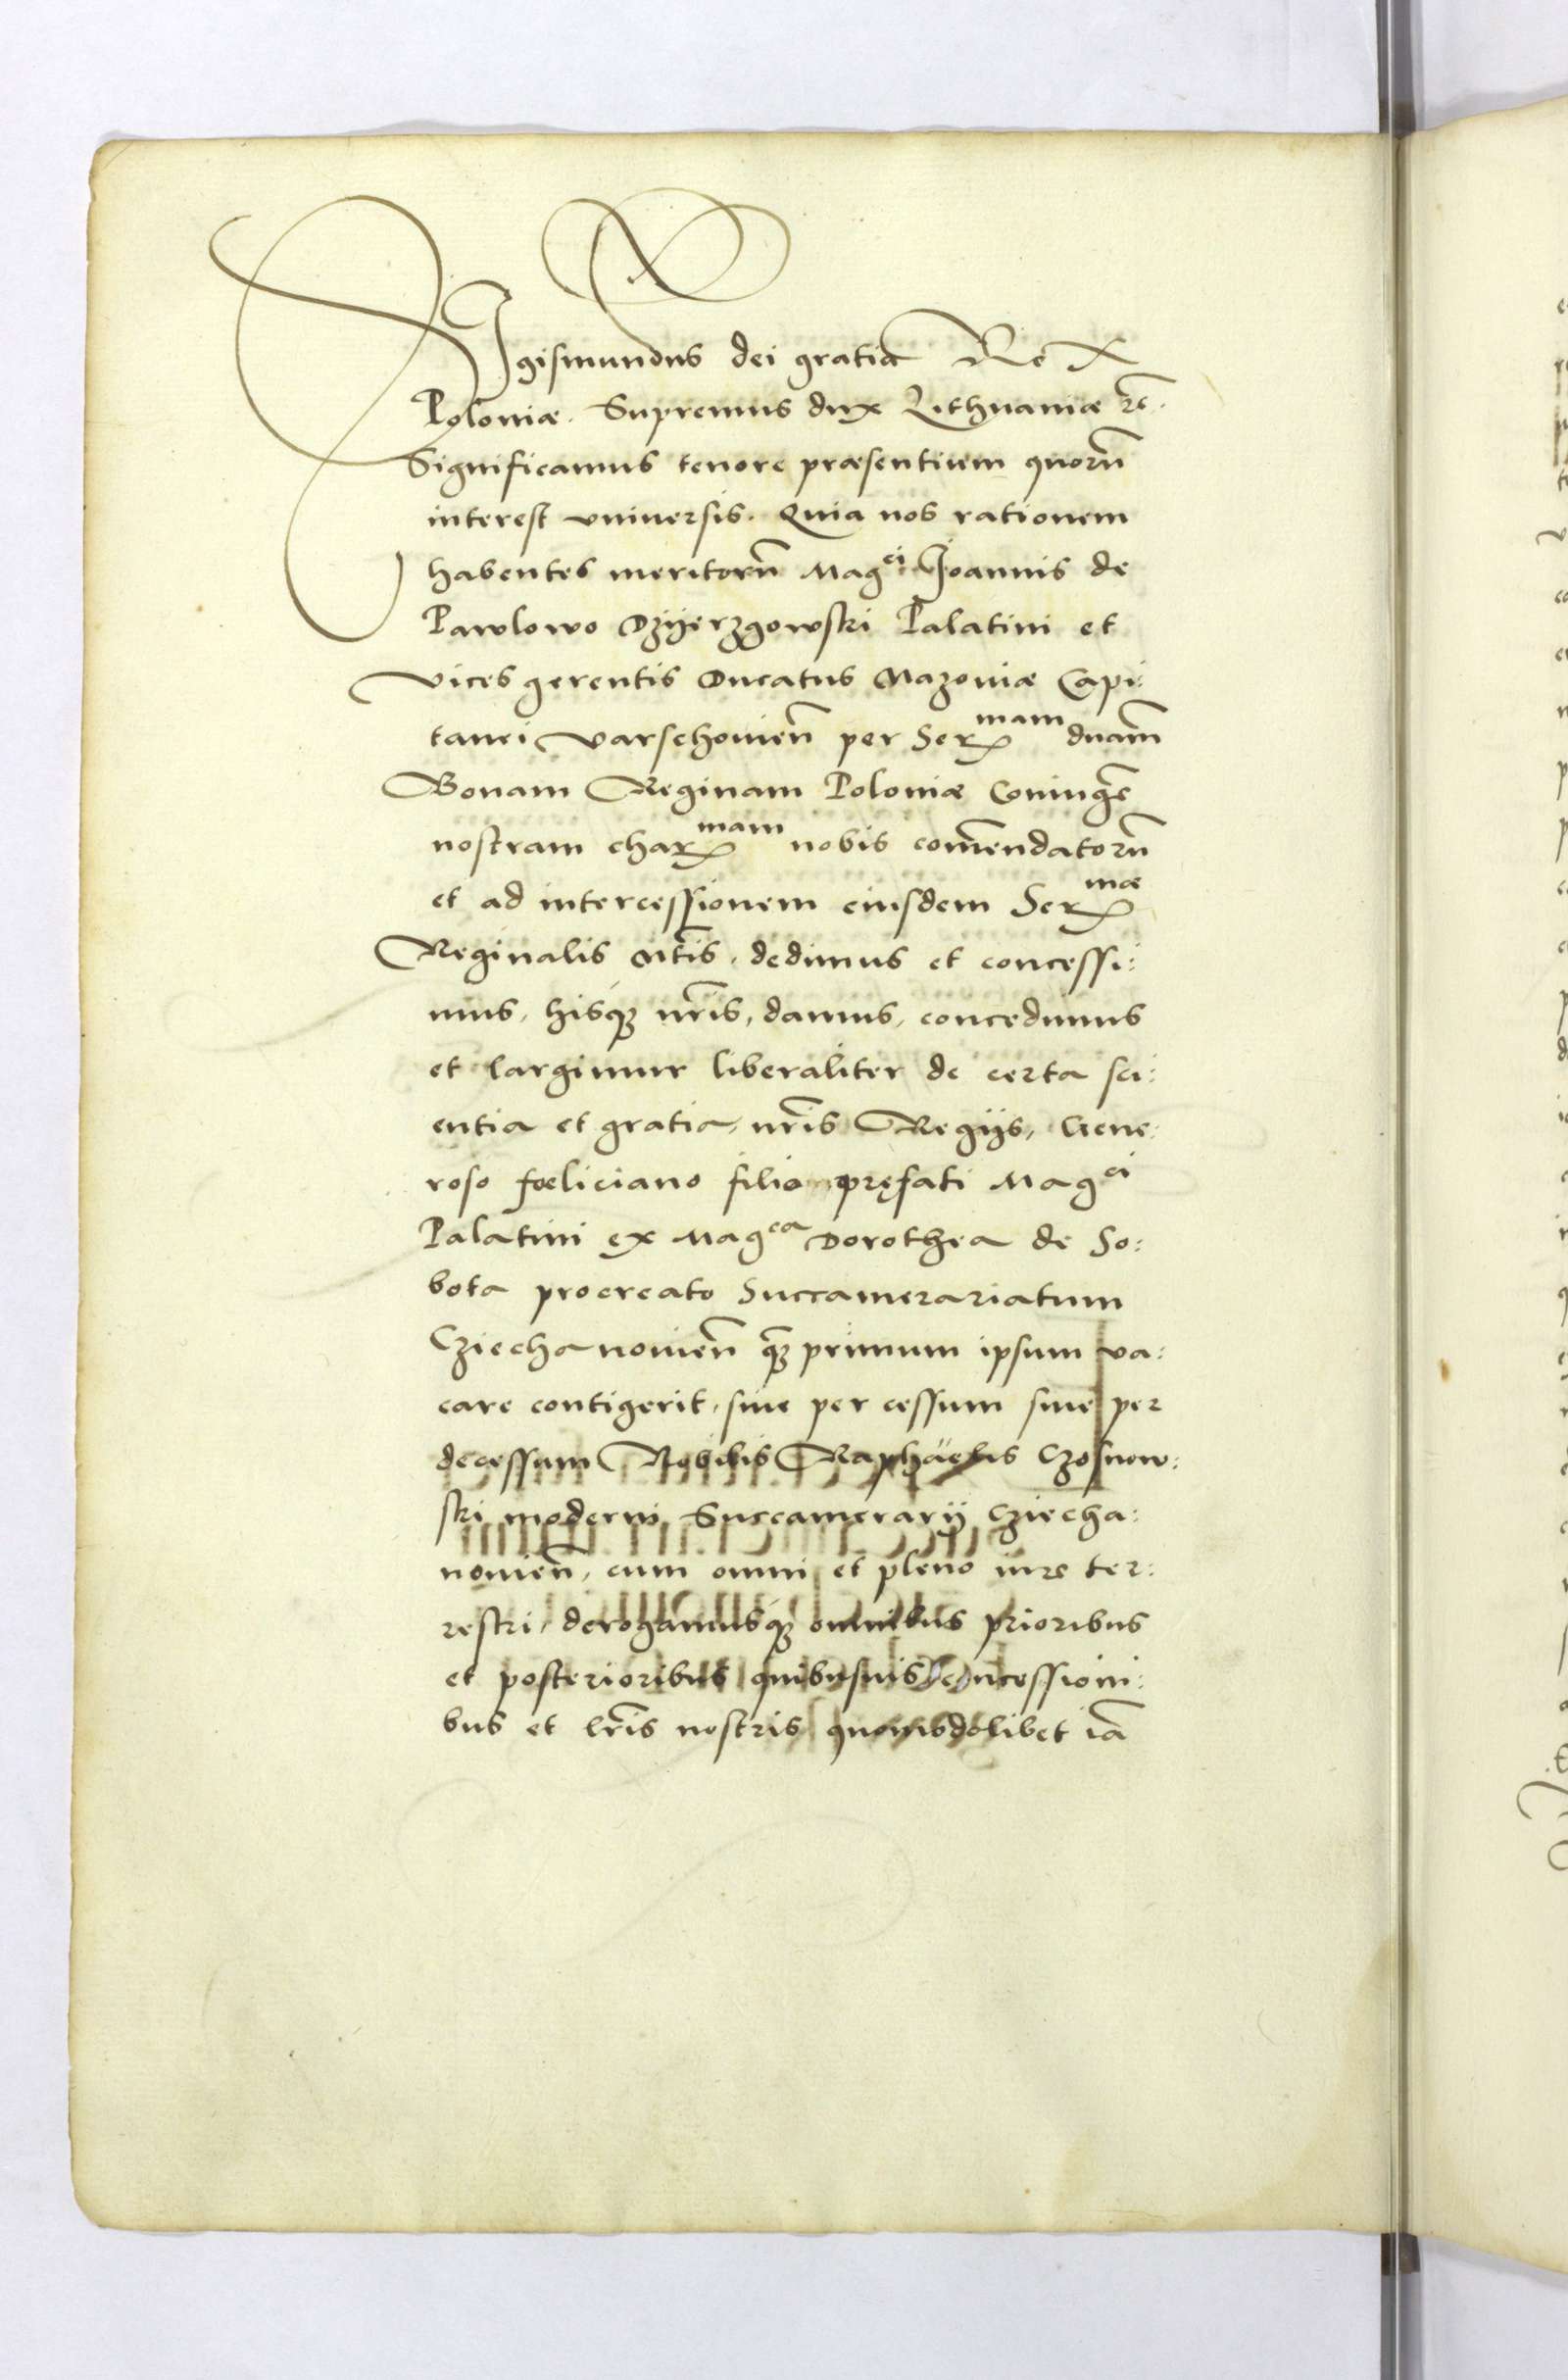 Sigismundus dei gratia ReX
Poloniæ. Supremus dux Lithuaniæ rc̃.
Significamus tenore præsentium quorũ
interest vniuersis. Quia nos rationem
habentes meritorũ Mag^ci Joannis de
Pawlowo Dzÿerzgowski Palatini et
vices gerentis Ducatus Mazouiæ Capi:
tanei varschouieñ per Ser^mam dnam̃
Bonam Reginam Poloniæ Coniugẽ
nostram char^mam nobis com̃endatorũ
et ad intercessionem eiusdem Ser^mæ
Reginalis Mt̃is, dedimus et concessi:
mus, hisq3 nr̃is, damus, concedimus
et largimur liberaliter de certa sci:
entia et gratia, nr̃is Regijs, Gene:
roso fœliciano filio pręfati Mag^ci
Palatini ex Mag^ca Dorothea de So:
bota procreato Succamerariatum
Cziechanouieñ q̃3 primum ipsum va:
care contigerit, siue per cessum siue per
decessum Nobilis Raphäelis Czosnow:
ski moderni Succamerarij Cziecha:
nouieñ, cum omni et pleno iure ter:
restri, derogamusq3 omnibus prioribus
et posterioribus quibusuis concessioni:
bus et lr̃is nostris quomodolibet iã